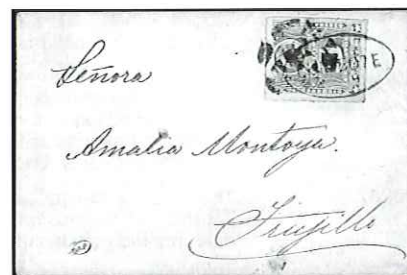 Señora
Amalia Montoya.
Trujillo